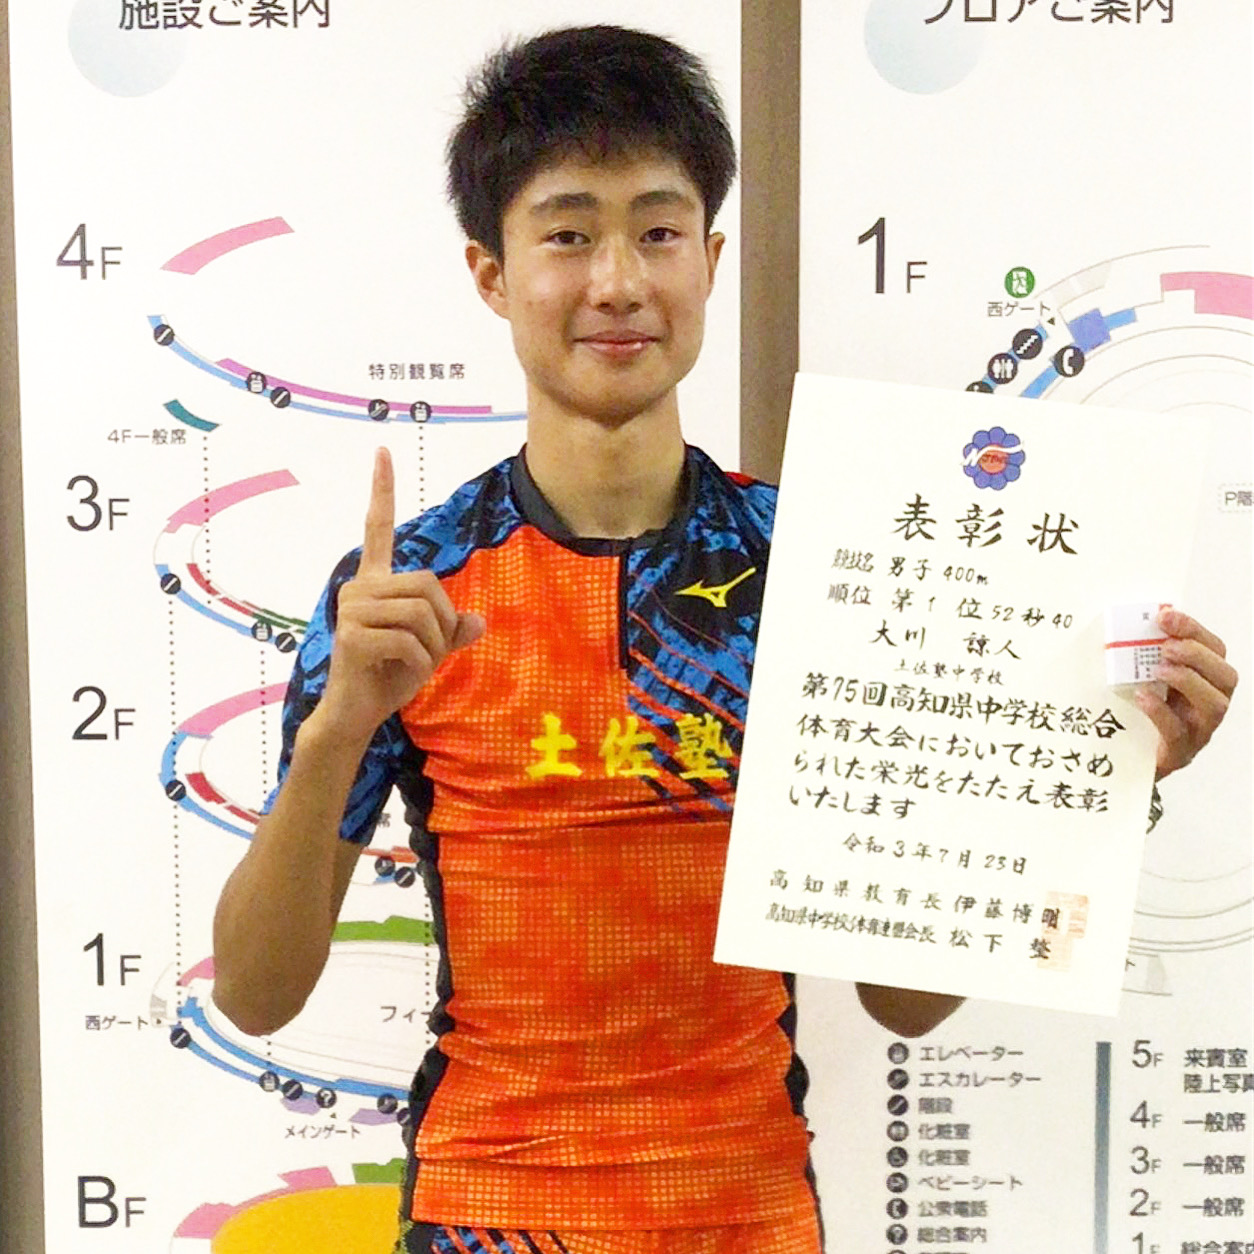 施設ご案内
フロアご案内
4F
特別観覧席
4F一般席
3F
2F
席
1F
西ゲート
フィ
メインゲート
BF
1F
西ゲート
P階
土佐塾
表彰状
競技名 男子 400m
順位 第1位 52秒40
大川 諒人
土佐塾中学校
第75回高知県中学校総合
体育大会においておさめ
られた栄光をたたえ表彰
いたします
令和3年7月23日
高知県教育長 伊藤博明
高知県中学校体育連盟会長 松下 整
エレベーター
エスカレーター
階段
化粧室
化粧室
ベビーシート
公衆電話
総合案内
5F 来賓室
陸上写真
4F 一般席
3F 一般席
2F 一般席
1F 総合案内